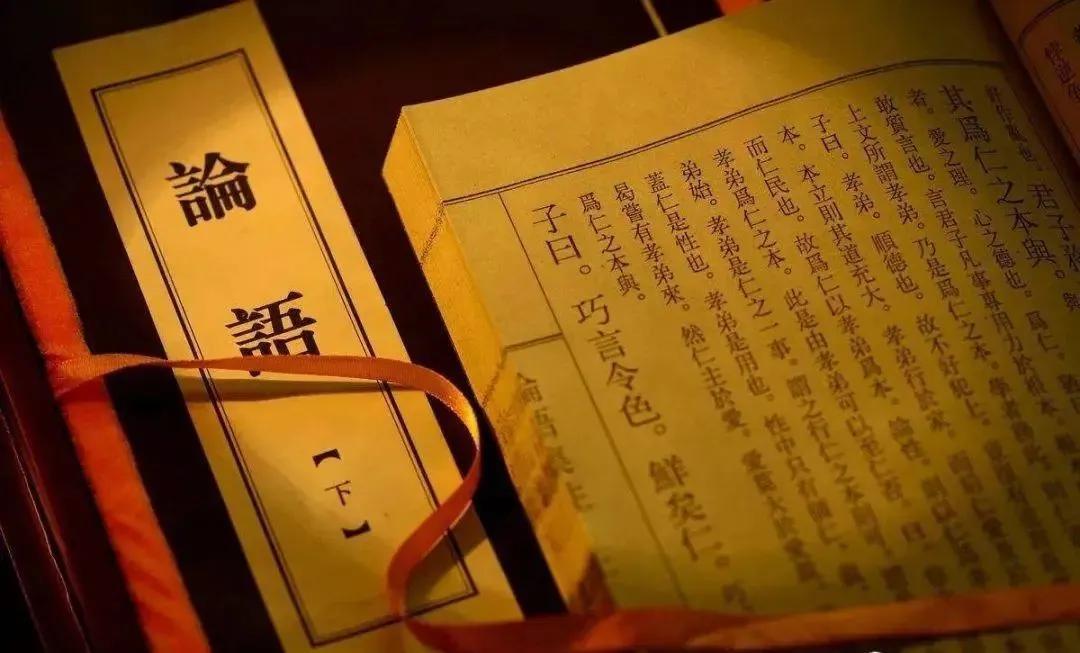 論語
【下】
君子務
其爲仁之本與。與
者。愛之理。心之德也。爲仁。
敢質言也。言君子凡事專用力於根本。
上文所謂孝弟。乃是爲仁之本。學者務此。則
子曰。孝弟。順德也。故不好犯上。
本。本立則其道充大。孝弟行於家。
而仁民也。故爲仁以孝弟爲本。論性。則以仁爲
孝弟爲仁之本。此是由孝弟可以至仁否。曰
弟始。孝弟是仁之一事。謂之行仁之本則可。
蓋仁是性也。孝弟是用也。性中只有
曷嘗有孝弟來。然仁主於愛。愛莫大於愛
爲仁之本與。
子曰。巧言令色。鮮矣仁。巧
論語集注